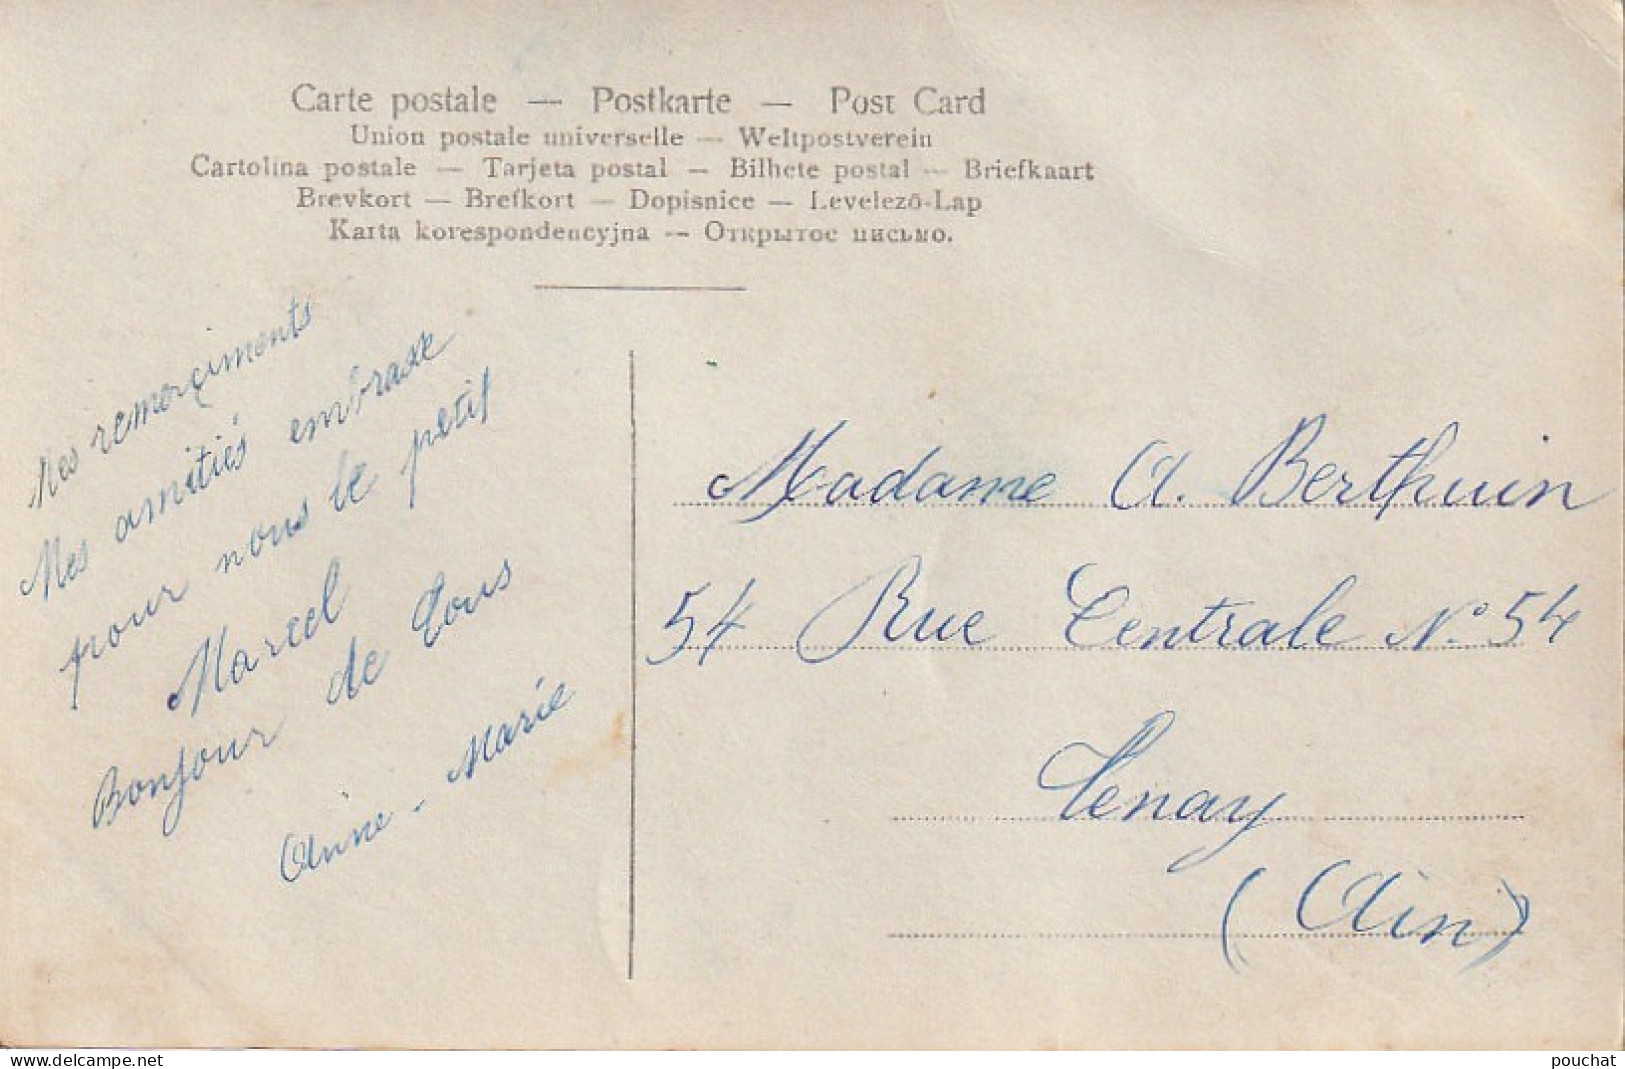 Carte postale — Postkarte — Post Card
Union postale universelle — Weltpostverein
Cartolina postale — Tarjeta postal — Bilhete postal — Briefkaart
Brevkort — Brefkort — Dopisnice — Levelező-Lap
Karta korespondencyjna — Открытое письмо.
Mes remerçiments
Mes amitiés embrasse
pour nous le petit
Marcel
Bonjour de Tous
Anne-Marie
Madame A. Berthuin
54 Rue Centrale N° 54
Tenay
(Ain)
www.delcampe.net
pouchat